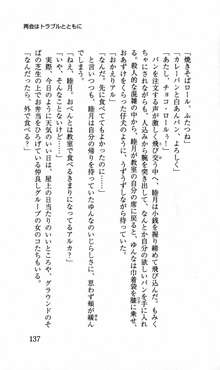 再会はトラブルとともに
「焼きそばロール、ふたつね」
「あたし、チョコ・ロール」
「カレーパンと白あんパン、よろしく」
パンを注文する声が飛び交う中、睦月は小銭を握りしめて飛び込んだ。もみく
ちゃになりながら、人込みから腕を突き出して、なんとか自分の欲しいパンを手に入れ
殺人的な混雑の中から、睦月が教室の自分の席に戻ると、ゆんなは巾着袋を膝に乗せ、
おあずけをくらった仔犬のように、うずうずしながら待っていた。
「おかえりアル」
と言いつつも、自分の帰りを待っていてくれたゆんなのいじらしさに、思わず頬が緩
「睦月、おひるは教室で食べるきまりになってるアルカ?」
「いや、そんなことないけど……なんで?」
今日のように天気のいい日は、屋上の日当たりのいいところや、グラウンドのそ
ばの芝生の上でお弁当を食べている仲良しグループの女のコたちもいる。
「なんだったら、外で食べる?」
137